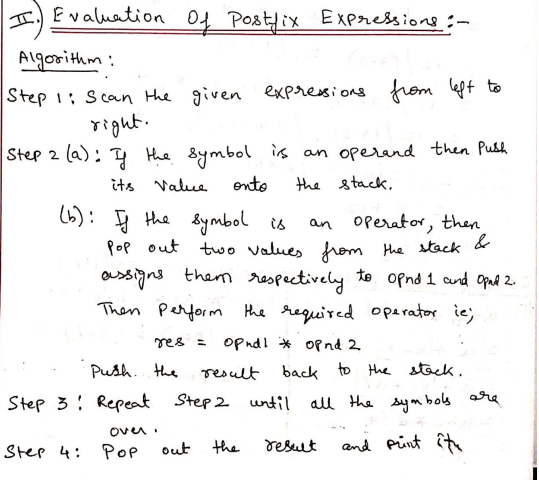 II.) Evaluation Of Postfix Expressions :-
Algorithm :
Step 1 : Scan the given expressions from left to
right.
Step 2 (a) : If the symbol is an operand then Push
its value onto the stack.
(b) : If the symbol is an operator, then
Pop out two values from the stack &
assigns them respectively to opnd 1 and opnd 2.
Then Perform the required operator ie;
res = opnd1 * opnd 2
Push the result back to the stack.
Step 3 : Repeat Step 2 until all the symbols are
over.
Step 4 : Pop out the result and print it